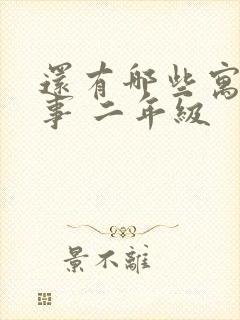 還有哪些寓
事 二年級
景不離